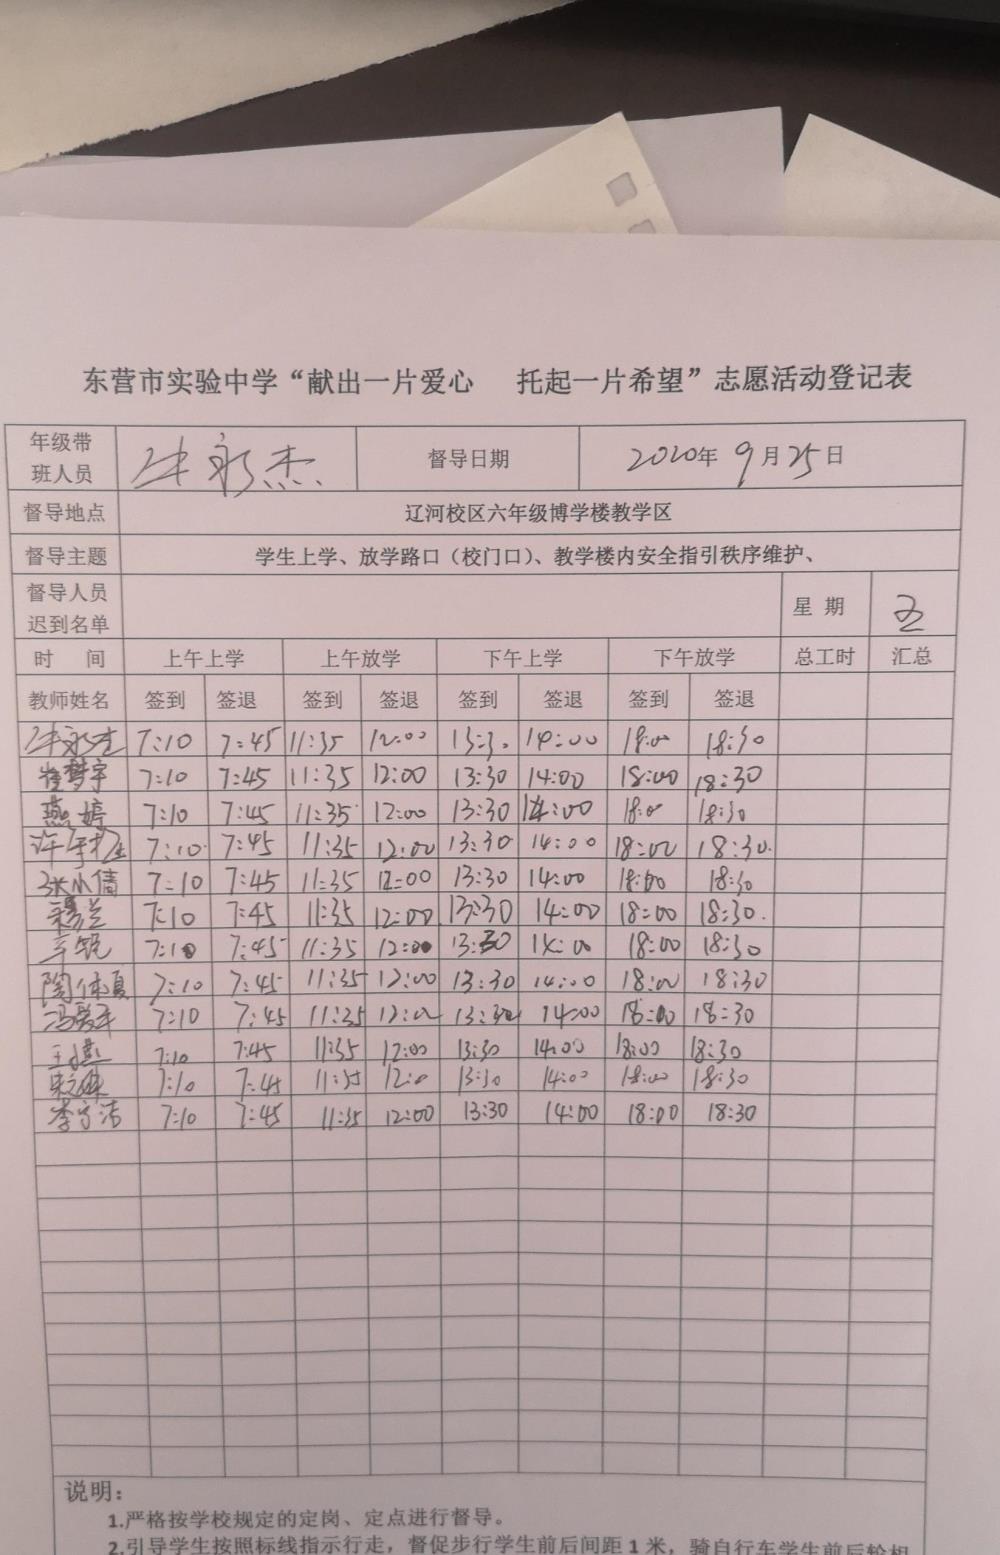 东营市实验中学“献出一片爱心 托起一片希望”志愿活动登记表
年级带班人员 牟永杰 督导日期 2020年9月25日
督导地点 辽河校区六年级博学楼教学区
督导主题 学生上学、放学路口（校门口）、教学楼内安全指引秩序维护、
督导人员迟到名单 星 期 五
时 间 上午上学 上午放学 下午上学 下午放学 总工时 汇总
教师姓名 签到 签退 签到 签退 签到 签退 签到 签退
牟永杰 7:10 7:45 11:35 12:00 13:30 14:00 18:00 18:30
崔梦宇 7:10 7:45 11:35 12:00 13:30 14:00 18:00 18:30
燕婷 7:10 7:45 11:35 12:00 13:30 14:00 18:00 18:30
7:10 7:45 11:35 12:00 13:30 14:00 18:00 18:30
张小倩 7:10 7:45 11:35 12:00 13:30 14:00 18:00 18:30
7:10 7:45 11:35 12:00 13:30 14:00 18:00 18:30
7:10 7:45 11:35 12:00 13:30 14:00 18:00 18:30
7:10 7:45 11:35 12:00 13:30 14:00 18:00 18:30
7:10 7:45 11:35 12:00 13:30 14:00 18:00 18:30
7:10 7:45 11:35 12:00 13:30 14:00 18:00 18:30
7:10 7:45 11:35 12:00 13:30 14:00 18:00 18:30
李宁洁 7:10 7:45 11:35 12:00 13:30 14:00 18:00 18:30
说明：
1.严格按学校规定的定岗、定点进行督导。
2.引导学生按照标线指示行走，督促步行学生前后间距 1 米，骑自行车学生前后轮相